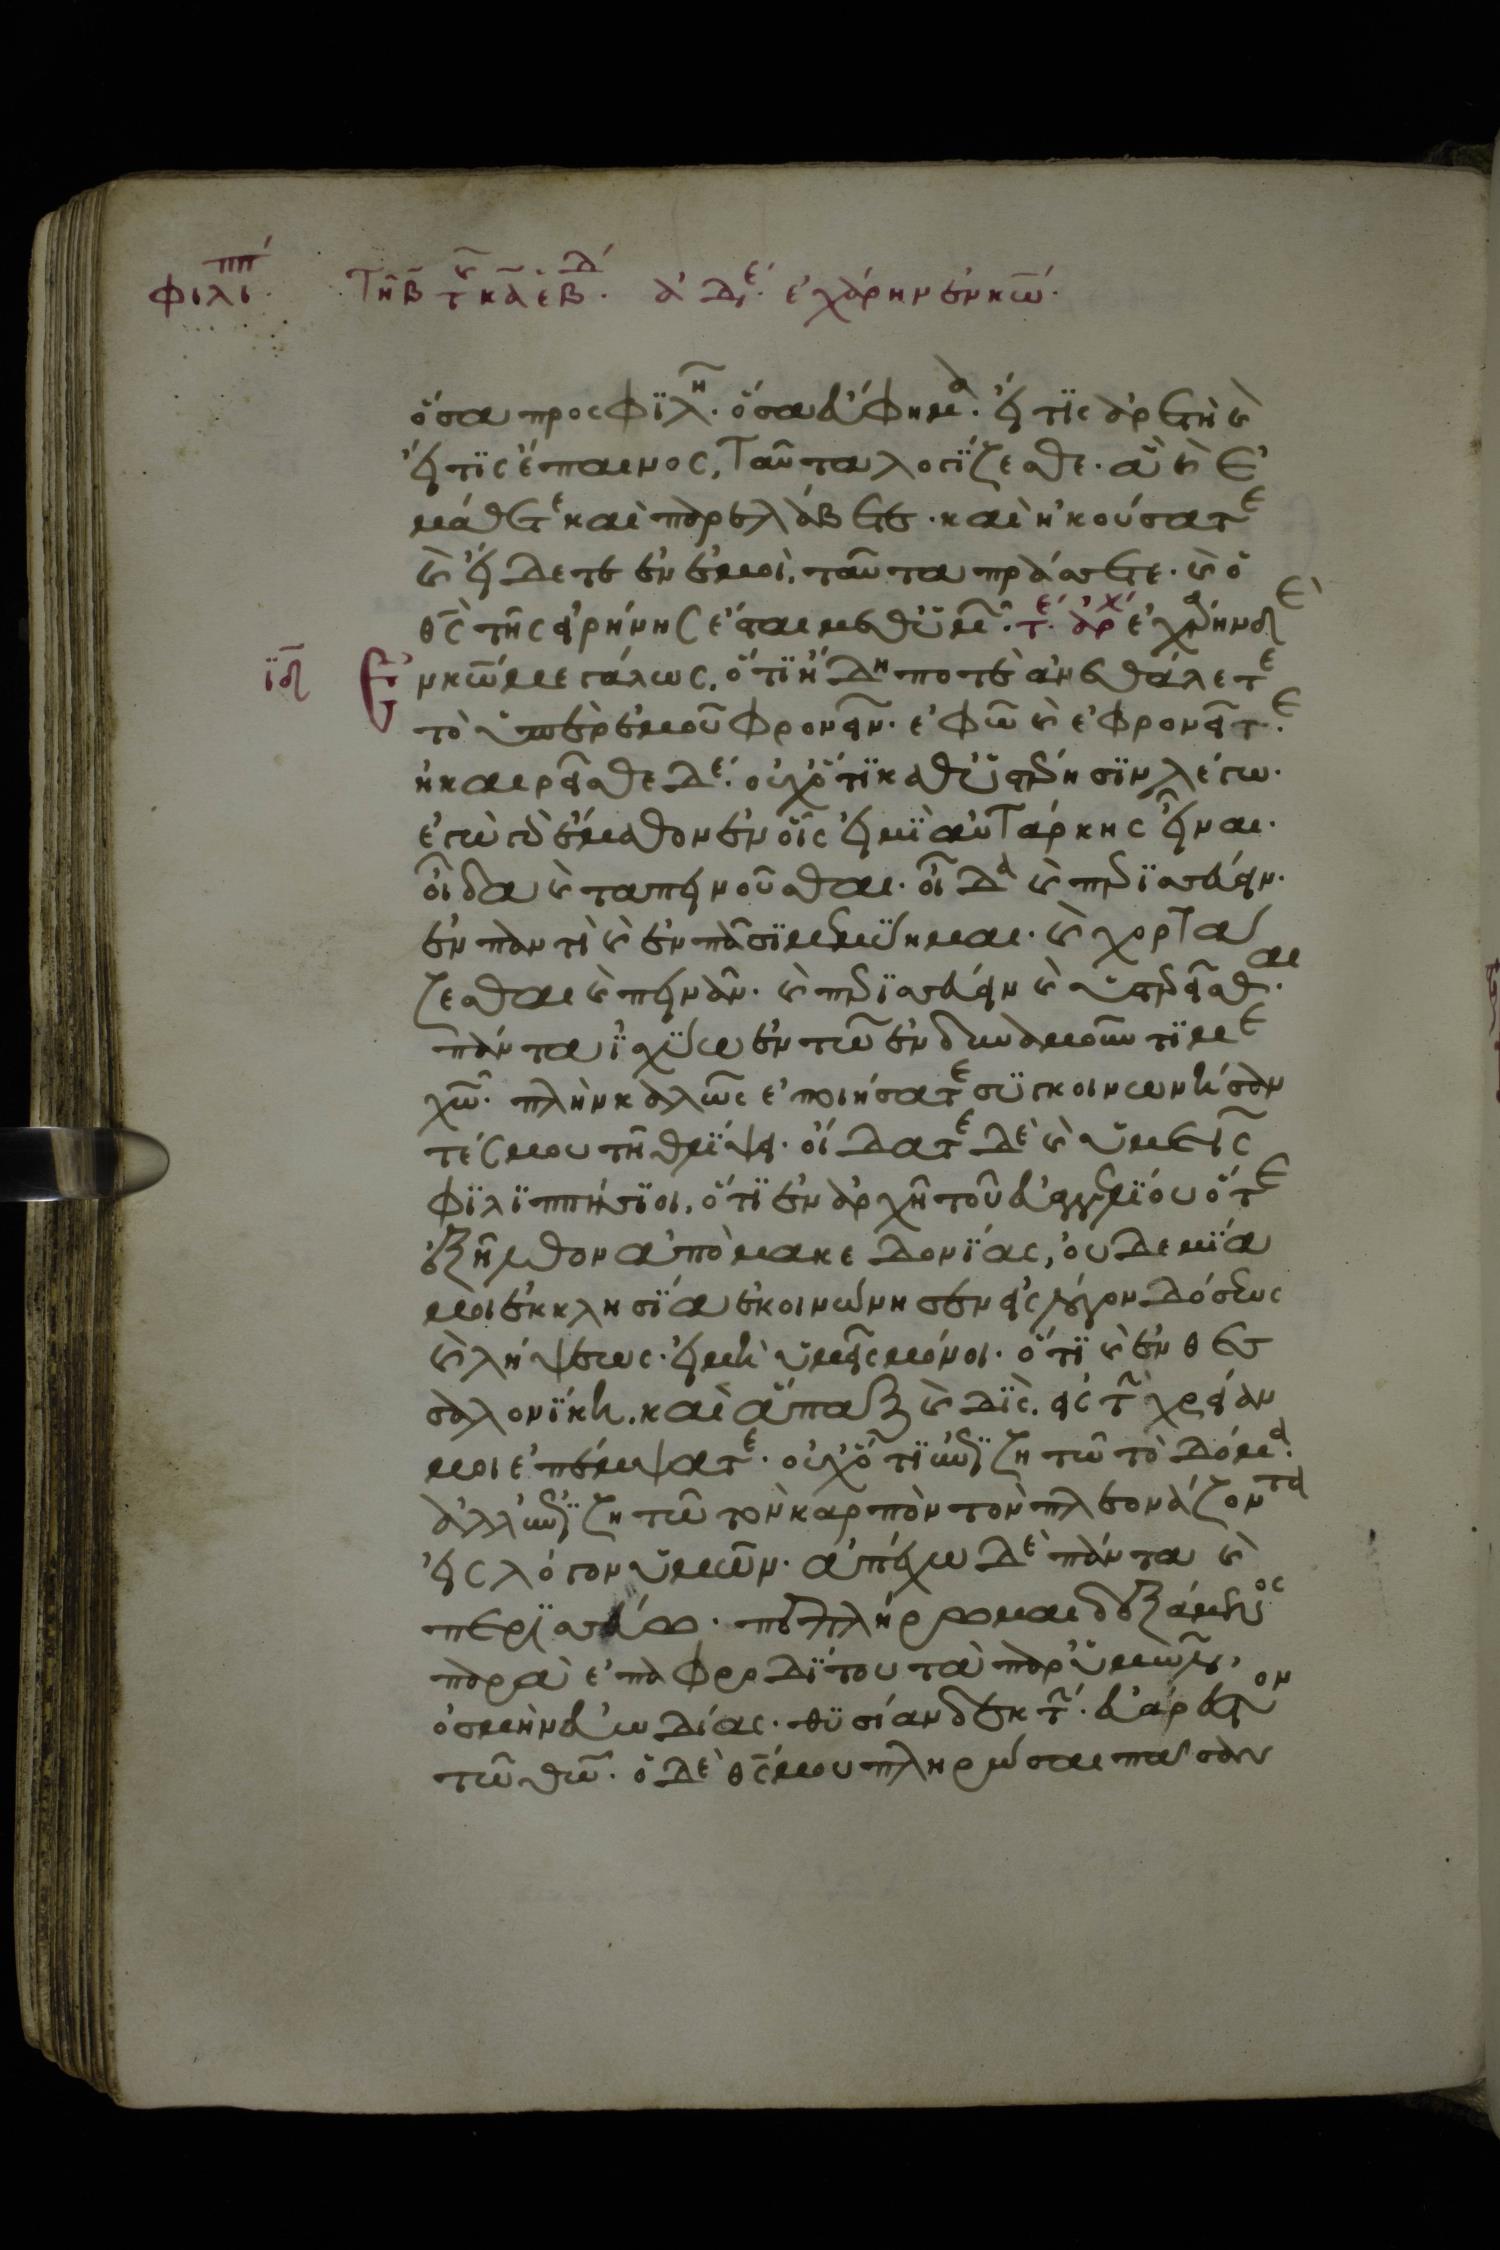 φιλιππ· Τῇ β τ κδ ε β δ. ἀδε· ἐχάρην ἐν κω·
ὅσα προσφϊλῆ· ὅσα εὔφημα· εἴ τϊς ἀρετὴ καὶ
εἴ τϊς ἔπαινος, ταῦτα λογίζεσθε· ἃ καὶ ἐ
μάθετε καὶ παρελάβετε· καὶ ἠκούσατε
καὶ εἴδετε ἐν ἐμοὶ, ταῦτα πράσσετε· καὶ ὁ
θς τῆς εἰρήνης ἔσται μεθ ὑμ· τε· ἀρχ ἐχάρην δὲ ἐ
ιδ ν κω μεγάλως, ὅτϊ ἤδη ποτὲ ἀνεθάλετε
τὸ ὑπὲρ ἐμοῦ φρονεῖν· ἐφ ὧ καὶ ἐφρονεῖτε·
ἠκαιρεῖσθε δέ· οὐχ ὅτϊ καθ ὑστέρησϊν λέγω·
ἐγὼ γὰρ ἔμαθον ἐν οἷς εἰμϊ αὐτάρκης εἶναι·
οἶδα καὶ ταπεινοῦσθαι· οἶδα καὶ περϊσσεύειν·
ἐν παντὶ καὶ ἐν πᾶσϊ μεμύημαι· καὶ χορτά
ζεσθαι καὶ πεινᾶν· καὶ περϊσσεύειν καὶ ὑστερεῖσθαι·
πάντα ἰσχύω ἐν τῶ ἐνδυναμοῦντϊ με
χω· πλὴν καλῶς ἐποιήσατε συγκοινωνήσαν
τές μου τῆ θλίψει· οἴδατε δὲ καὶ ὑμεῖς
φϊλϊππήσϊοι, ὅτϊ ἐν ἀρχῆ τοῦ εὐαγγελϊου ὅτε
ἐξῆλθον ἀπὸ μακεδονϊας, οὐδεμϊα
μοι ἐκκλησϊα ἐκοινώνησεν εἰς λόγον δόσεως
καὶ λήψεως· εἰ μὴ ὑμεῖς μόνοι· ὅτϊ καὶ ἐν θεσ
σαλονϊκη, καὶ ἅπαξ καὶ δϊς, εἰς τ χρείαν
μοι ἐπέμψατε· οὐχ ὅτϊ ἐπϊζητῶ τὸ δόμα·
ἀλλ ἐπϊζητῶ τὸν καρπὸν τὸν πλεονάζοντα
εἰς λόγον ὑμῶν· ἀπέχω δὲ πάντα καὶ
περϊσσεύω· πεπλήρωμαι δεξάμενος
παρὰ ἐπαφροδϊτου τὰ παρ ὑμῶν,
ὀσμὴν εὐωδίας· θυσίαν δεκτ· εὐάρεστον
τῶ θω· ὁ δὲ θς μου πληρώσαι πᾶσαν